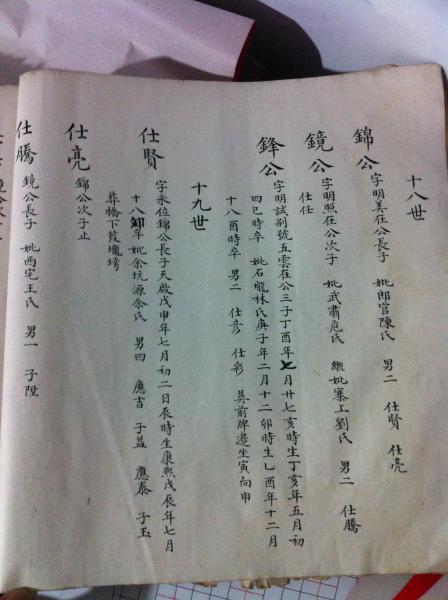 十八世
錦公 字明美在公長子 妣郎官陳氏 男二 仕賢 仕亮
鏡公 字明照在公次子 妣武肅危氏 繼妣寨上劉氏 男二 仕騰
仕任
鋒公 字明試别號五雲在公三子丁酉年七月廿七亥時生丁亥年五月初
四巳時卒 妣石龍林氏庚子年二月十二卯時生乙酉年十二月
十八酉時卒 男二 仕彦 仕彩 葬前牌邉坐寅向申
十九世
仕賢 字永位錦公長子天啟戊申年七月初二日辰時生康熙戊辰年七月
十八卯時卒 妣余坑源余氏 男四 應吉 子益 應泰 子玉
葬橋下段壠塝
仕亮 錦公次子止
仕騰 鏡公長子 妣西宅王氏 男一 子陞